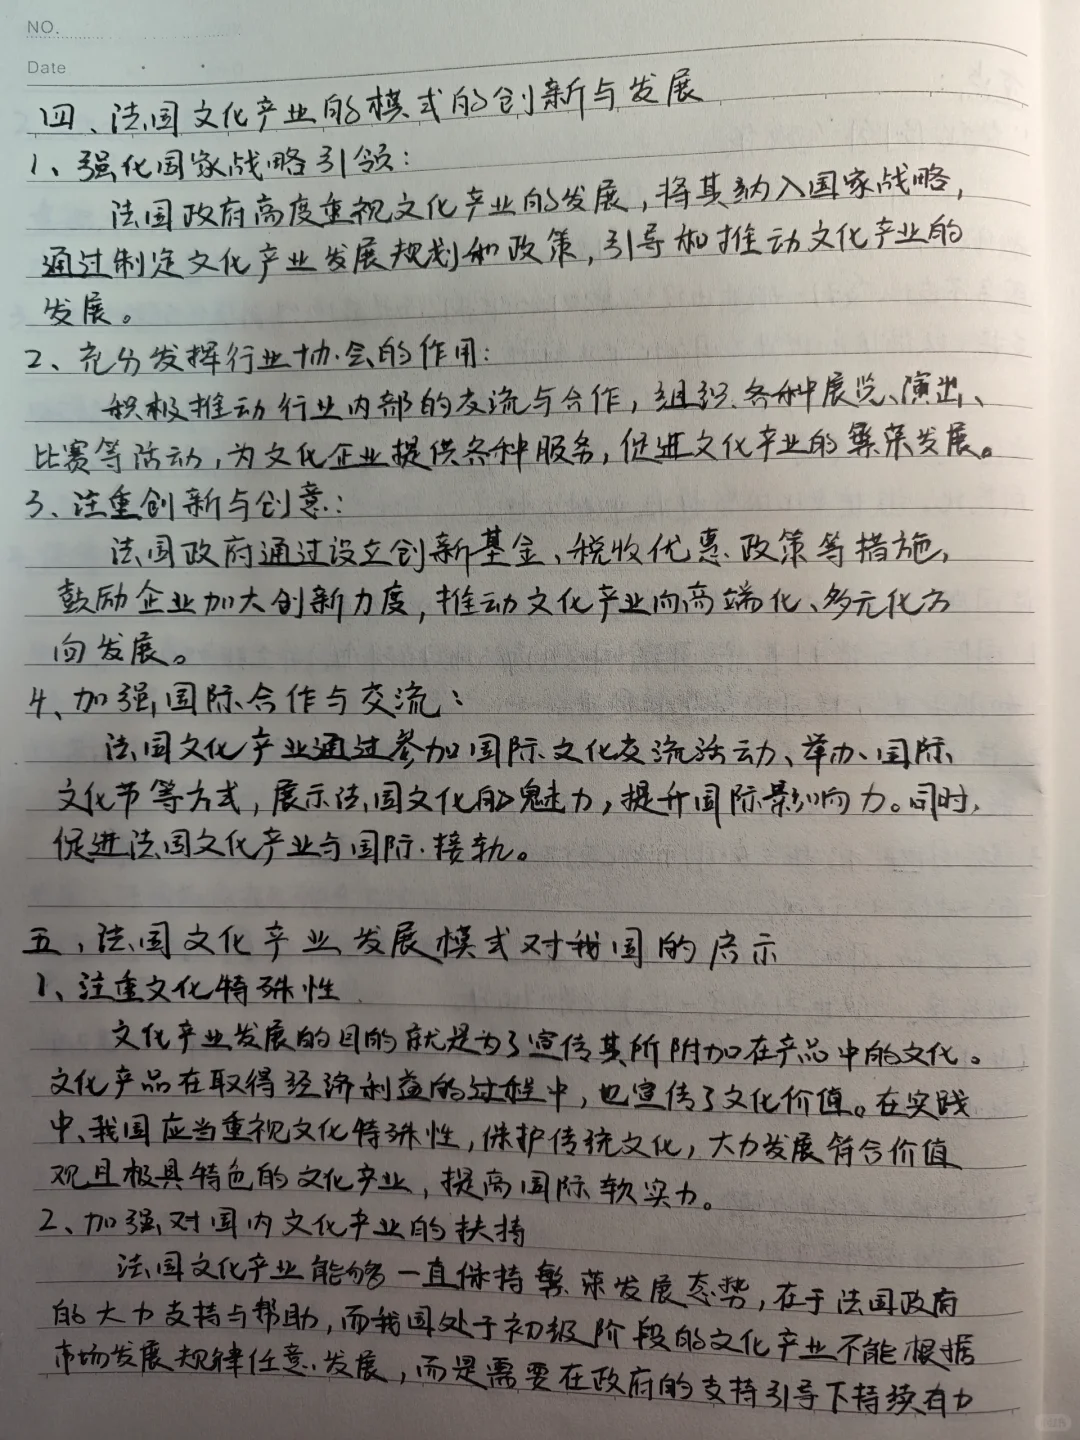 NO.
Date
四、法国文化产业的模式的创新与发展
1、强化国家战略引领：
法国政府高度重视文化产业的发展，将其纳入国家战略，
通过制定文化产业发展规划和政策，引导和推动文化产业的
发展。
2、充分发挥行业协会的作用：
积极推动行业内部的交流与合作，组织各种展览、演出、
比赛等活动，为文化企业提供各种服务，促进文化产业的繁荣发展。
3、注重创新与创意：
法国政府通过设立创新基金、税收优惠政策等措施，
鼓励企业加大创新力度，推动文化产业向高端化、多元化方
向发展。
4、加强国际合作与交流：
法国文化产业通过参加国际文化交流活动、举办国际
文化节等方式，展示法国文化的魅力，提升国际影响力。同时，
促进法国文化产业与国际接轨。
五、法国文化产业发展模式对我国的启示
1、注重文化特殊性
文化产业发展的目的就是为了宣传其所附加在产品中的文化。
文化产品在取得经济利益的过程中，也宣传了文化价值。在实践
中、我国应当重视文化特殊性，保护传统文化，大力发展符合价值
观且极具特色的文化产业，提高国际软实力。
2、加强对国内文化产业的扶持
法国文化产业能够一直保持繁荣发展态势，在于法国政府
的大力支持与帮助，而我国处于初级阶段的文化产业不能根据
市场发展规律任意发展，而是需要在政府的支持引导下持续有力